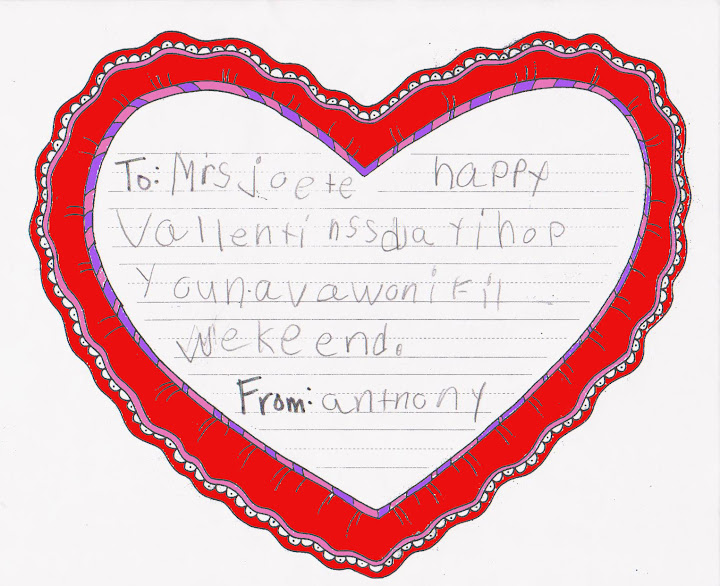 To: Mrs joete happy
Vallentinssdayihop
Younavawonifil
wekeend.
From: antnony